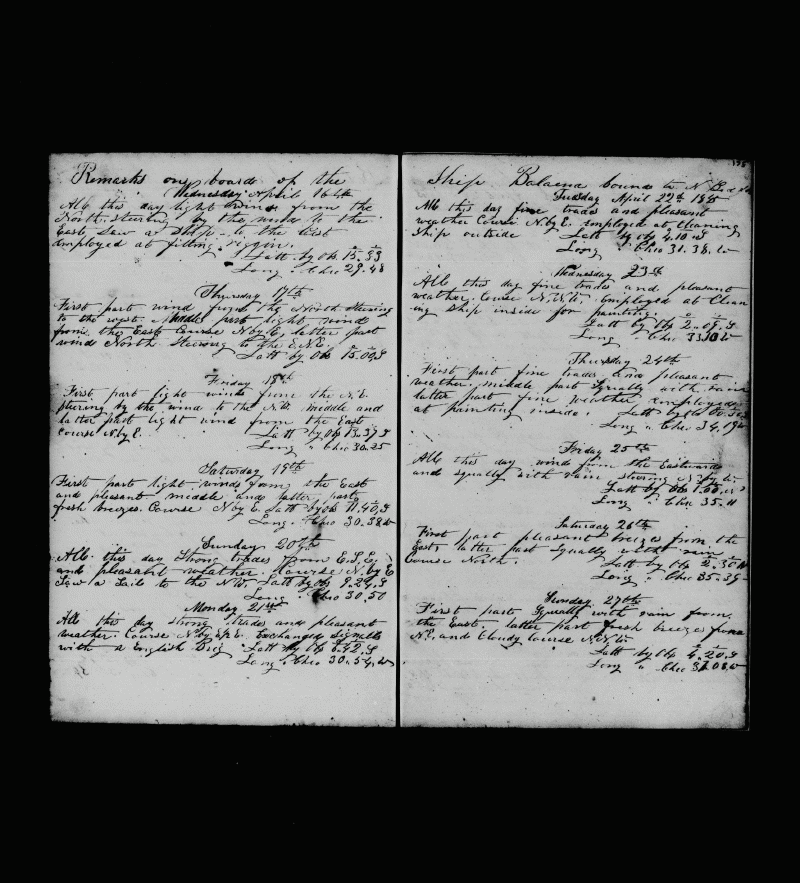 Remarks on board of the
Wednesday April 16th
All this day light winds from the
North. Steering by the wind to the
East Saw a Ship to the East
Employed at fitting riggin.
Latt by Ob 15.53
Long " Chro 29.48
Thursday 17th
First part wind from the North Steering
to the west. Middle part light wind
from the East Course N by E, latter part
wind North Steering to the E.N.E.
Latt by Ob 15.00 S
Friday 18th
First part light winds from the N.E.
stering by the wind to the NW. Middle and
latter part light wind from the East
Course N. by E. Latt by Ob 13.37 S
Long " Chro 30.25
Saturday 19th
First part light winds from the East
and pleasant middle and latter part
fresh breezes. Course N by E Latt by Ob 11.40 S
Long. " Chro 30.38 W
Sunday 20th
All this day Strong trades from E.S.E.
and pleasant weather. Course N. by E
Saw a Sail to the NW. Latt by Ob 9.29 S
Long " Chro 30.50
Monday 21st
All this day strong trades and pleasant
weather. Course N. by E. Exchanged Signals
with a English Brig Latt by Ob 6.42 S
Long " Chro 30.54 W
138
Ship Balaena bound to N B
Tuesday April 22th 1845
All this day fine trades and pleasant
weather Course N. by E. employed at Cleaning
Ship outside Latt by Ob 4.10 S
Long " Chro 31.38 W
Wednesday 23th
All this day fine trades and pleasant
weather. Course N. Employed at Clean
ing Ship inside for painting.
Latt by Ob 2.09 S
Long " Chro 33.10 W
Thursday 24th
First part fine trades and pleasant
weather. middle part Squally with rain
latter part fine weather employed
at painting inside. Latt by Ob
Long " Chro 34.19 W
Friday 25th
All this day wind from the Eastward
and squally with rain stering N. by W.
Latt by Ob 1.00
Long " Chro 35.11
Saturday 26th
First part pleasant breeze from the
East, latter part Squally with rain
Course North. Latt by Ob 2.30 N
Long " Chro 35.39
Sunday 27th
First part Squally with rain from
the East. latter part fresh breeze from
N.E. and Cloudy Course N.N.W.
Latt by Ob 4.20
Long " Chro 37.08 W